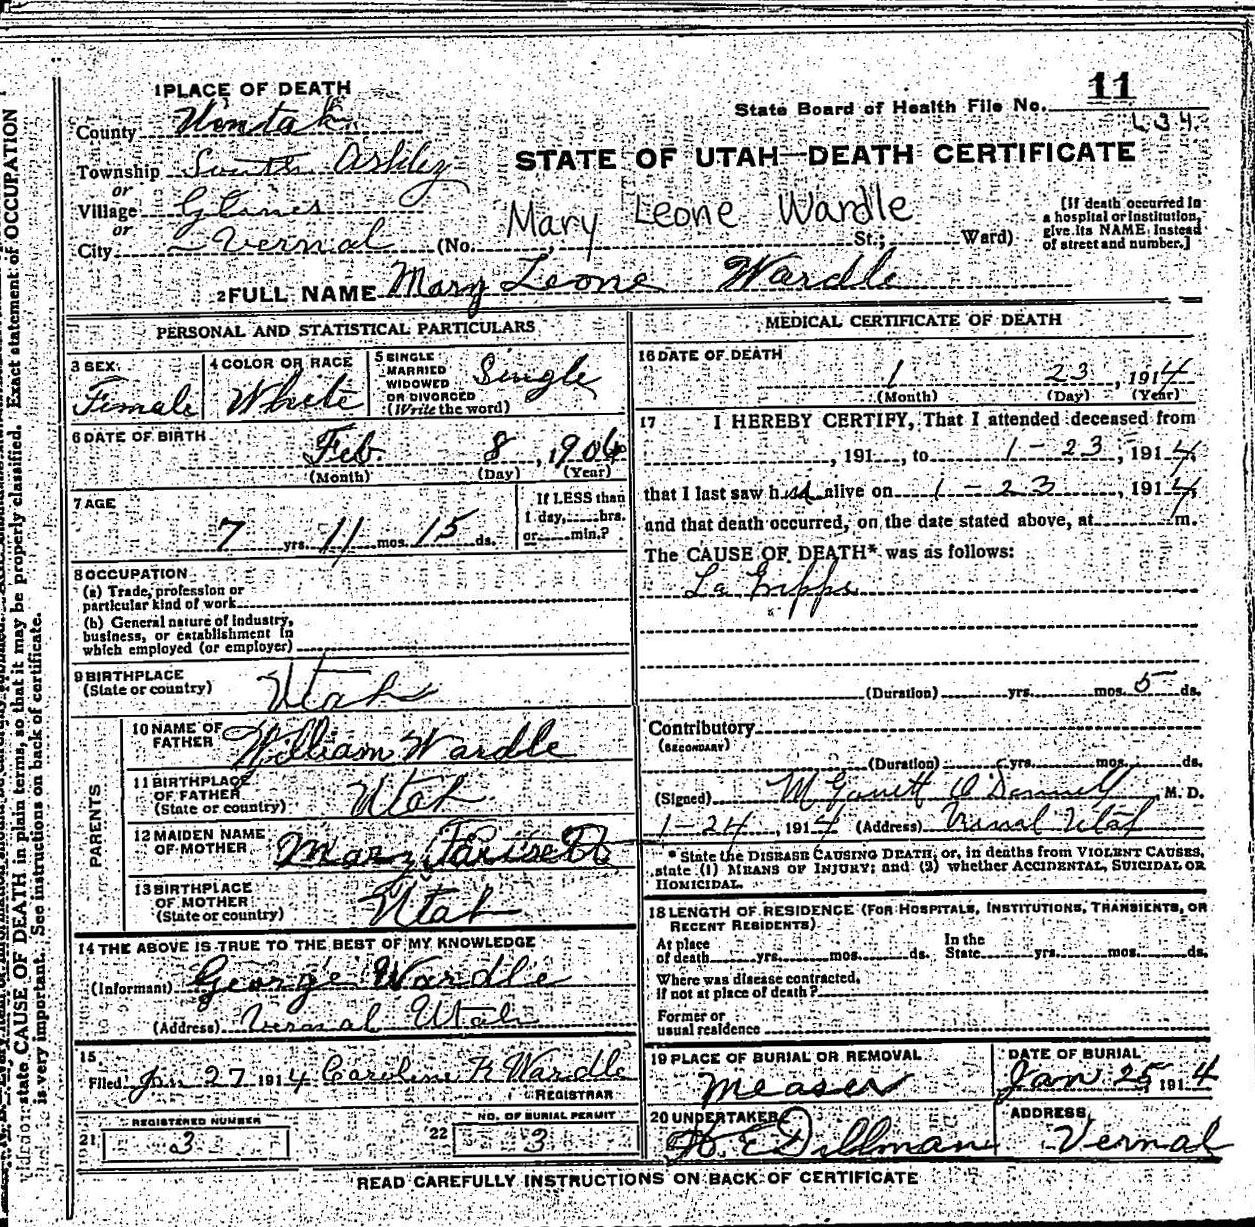 1 PLACE OF DEATH
11
State Board of Health File No.
County Uintah
Township South Ashley
or
Village Glines
or
City Vernal (No. St.; Ward)
STATE OF UTAH—DEATH CERTIFICATE
Mary Leone Wardle
[If death occurred in
a hospital or institution,
give its NAME, instead
of street and number.]
2 FULL NAME Mary Leone Wardle
PERSONAL AND STATISTICAL PARTICULARS
3 SEX Female
4 COLOR OR RACE White
5 SINGLE
MARRIED
WIDOWED
OR DIVORCED
(Write the word)
Single
6 DATE OF BIRTH
Feb. 8, 1906
(Month) (Day) (Year)
7 AGE
7 yrs. 11 mos. 15 ds.
If LESS than
1 day, hrs.
or min.?
8 OCCUPATION
(a) Trade, profession or
particular kind of work
(b) General nature of industry,
business, or establishment in
which employed (or employer)
9 BIRTHPLACE
(State or country) Utah
PARENTS
10 NAME OF
FATHER William Wardle
11 BIRTHPLACE
OF FATHER
(State or country) Utah
12 MAIDEN NAME
OF MOTHER Mary
13 BIRTHPLACE
OF MOTHER
(State or country) Utah
14 THE ABOVE IS TRUE TO THE BEST OF MY KNOWLEDGE
(Informant) George Wardle
(Address) Vernal Utah
15
Filed Jan 27 1914 Caroline K Wardle
REGISTRAR
REGISTERED NUMBER
21 3
NO. OF BURIAL PERMIT
22 3
MEDICAL CERTIFICATE OF DEATH
16 DATE OF DEATH
1 23, 1914
(Month) (Day) (Year)
17 I HEREBY CERTIFY, That I attended deceased from
, 191 , to 1-23, 1914,
that I last saw h alive on 1-23, 1914,
and that death occurred, on the date stated above, at m.
The CAUSE OF DEATH* was as follows:
La Grippe
(Duration) yrs. mos. 5 ds.
Contributory
(SECONDARY)
(Duration) yrs. mos. ds.
(Signed) M Garrett O'Donnell, M. D.
1-24, 1914 (Address) Vernal Utah
* State the DISEASE CAUSING DEATH, or, in deaths from VIOLENT CAUSES,
state (1) MEANS OF INJURY; and (2) whether ACCIDENTAL, SUICIDAL OR
HOMICIDAL.
18 LENGTH OF RESIDENCE (FOR HOSPITALS, INSTITUTIONS, TRANSIENTS, OR
RECENT RESIDENTS)
At place
of death yrs. mos. ds.
In the
State yrs. mos. ds.
Where was disease contracted,
if not at place of death?
Former or
usual residence
19 PLACE OF BURIAL OR REMOVAL
Measer
DATE OF BURIAL
Jan 25, 1914
20 UNDERTAKER
Dillman
ADDRESS
Vernal
READ CAREFULLY INSTRUCTIONS ON BACK OF CERTIFICATE
state CAUSE OF DEATH in plain terms, so that it may be properly classified. Exact statement of OCCUPATION
is very important. See instructions on back of certificate.